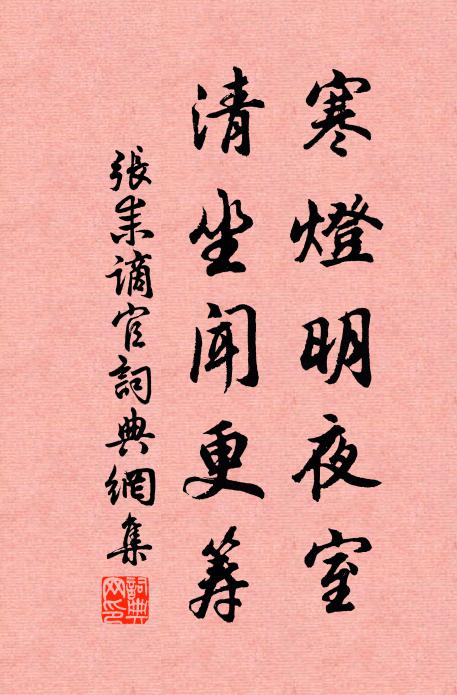 寒燈明夜室
清坐聞更筹
張耒謫官詞典網集
詞典網印